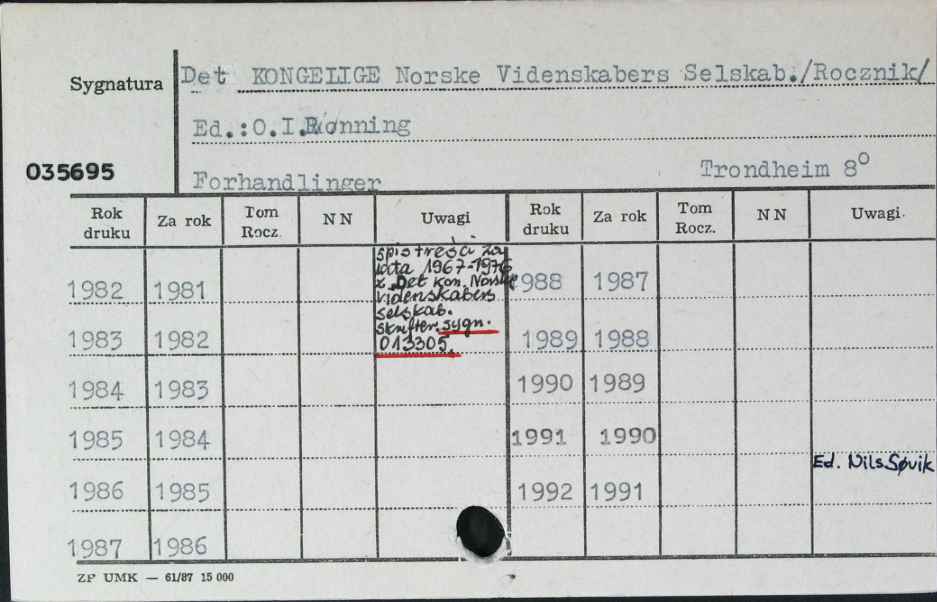 Sygnatura Det KONGELIGE Norske Videnskabers Selskab./Rocznik/
Ed.:O.I.Rønning
035695
Forhandlinger Trondheim 8º
Rok druku Za rok Tom Rocz. N N Uwagi Rok druku Za rok Tom Rocz. N N Uwagi
spis treści za
lata 1967-1976
z „Det Kon. Norske
Videnskabers
selskab.
Skrifter. sygn.
013305.
1982 1981 1988 1987
1983 1982 1989 1988
1984 1983 1990 1989
1985 1984 1991 1990
Ed. Nils Søvik
1986 1985 1992 1991
1987 1986
ZP UMK — 61/87 15 000